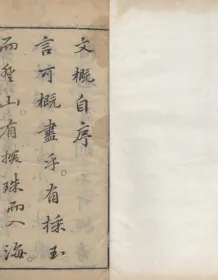 文概自序
言可概盡乎有採玉
而登山有探珠而入海